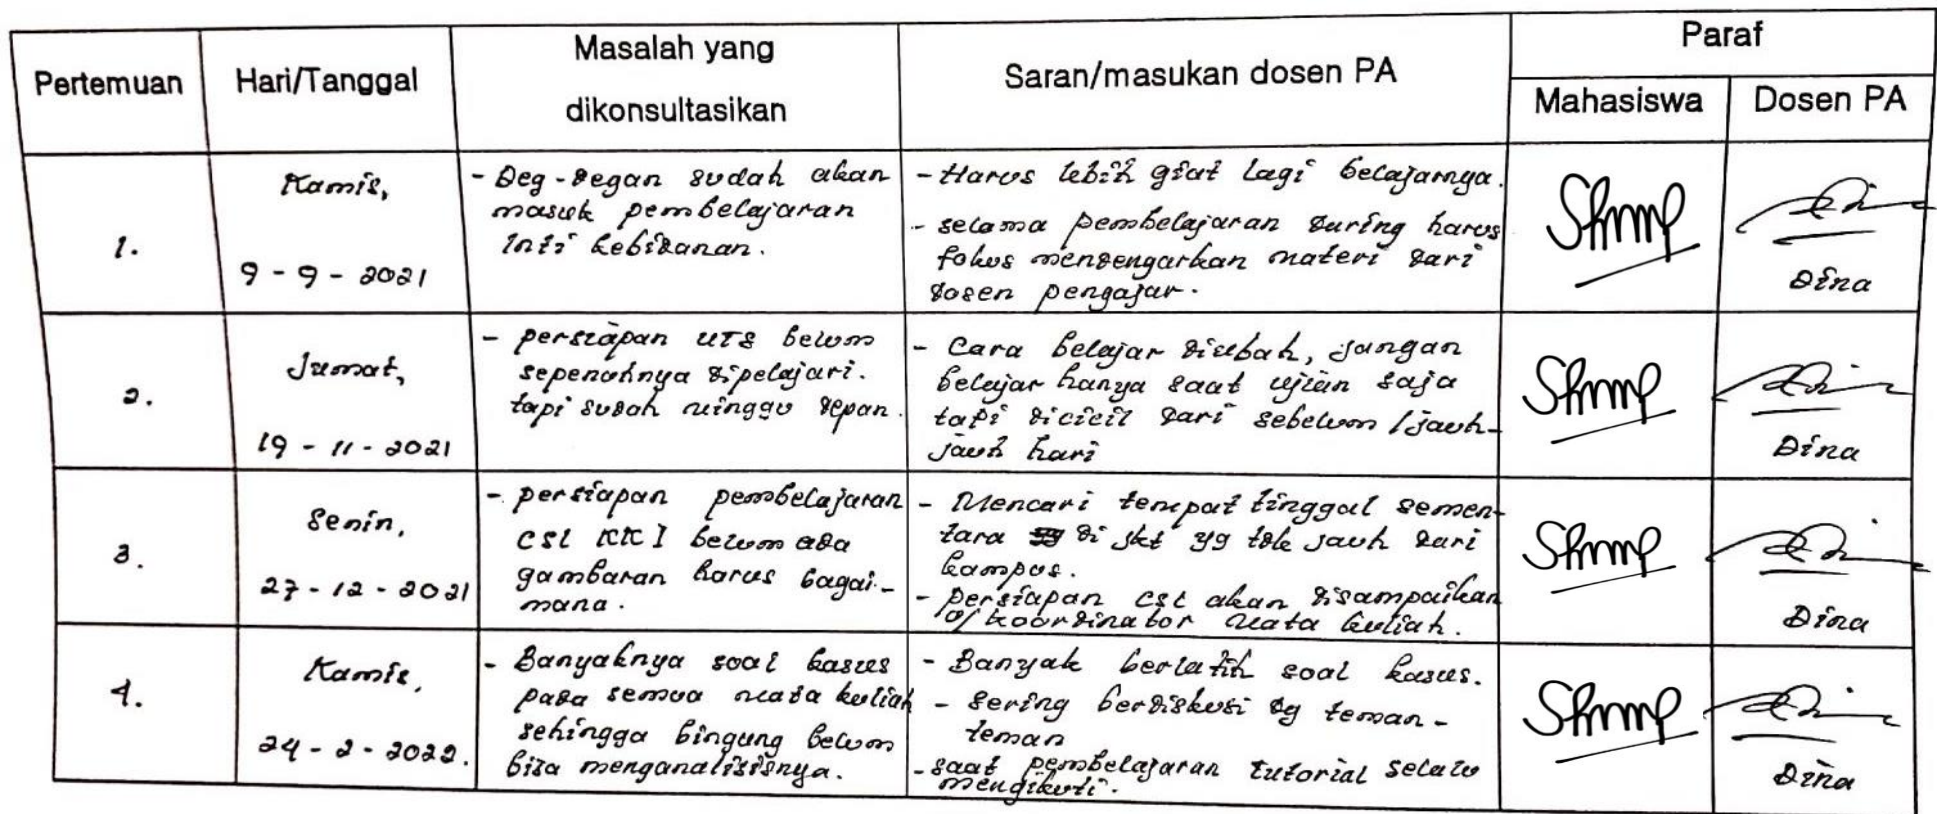 Pertemuan
Hari/Tanggal
Masalah yang
dikonsultasikan
Saran/masukan dosen PA
Paraf
Mahasiswa
Dosen PA
1.
Kamis,
9 - 9 - 2021
- Deg-degan sudah akan
masuk pembelajaran
inti kebidanan.
- Harus lebih giat lagi belajarnya.
- selama pembelajaran daring harus
fokus mendengarkan materi dari
dosen pengajar.
Dina
2.
Jumat,
19 - 11 - 2021
- persiapan UTS belum
sepenuhnya dipelajari.
tapi sudah minggu depan.
- Cara belajar diubah, jangan
belajar hanya saat ujian saja
tapi dicicil dari sebelum / jauh-
jauh hari
Dina
3.
Senin,
27 - 12 - 2021
- persiapan pembelajaran
CSL KK I belum ada
gambaran harus bagai-
mana.
- Mencari tempat tinggal semen-
tara di skt yg tdk jauh dari
kampus.
- persiapan csl akan disampaikan
o/ koordinator mata kuliah.
Dina
4.
Kamis,
24 - 2 - 2022.
- Banyaknya soal kasus
pada semua mata kuliah
sehingga bingung belum
bisa menganalisisnya.
- Banyak berlatih soal kasus.
- Sering berdiskusi dg teman-
teman
- saat pembelajaran tutorial selalu
mengikuti.
Dina